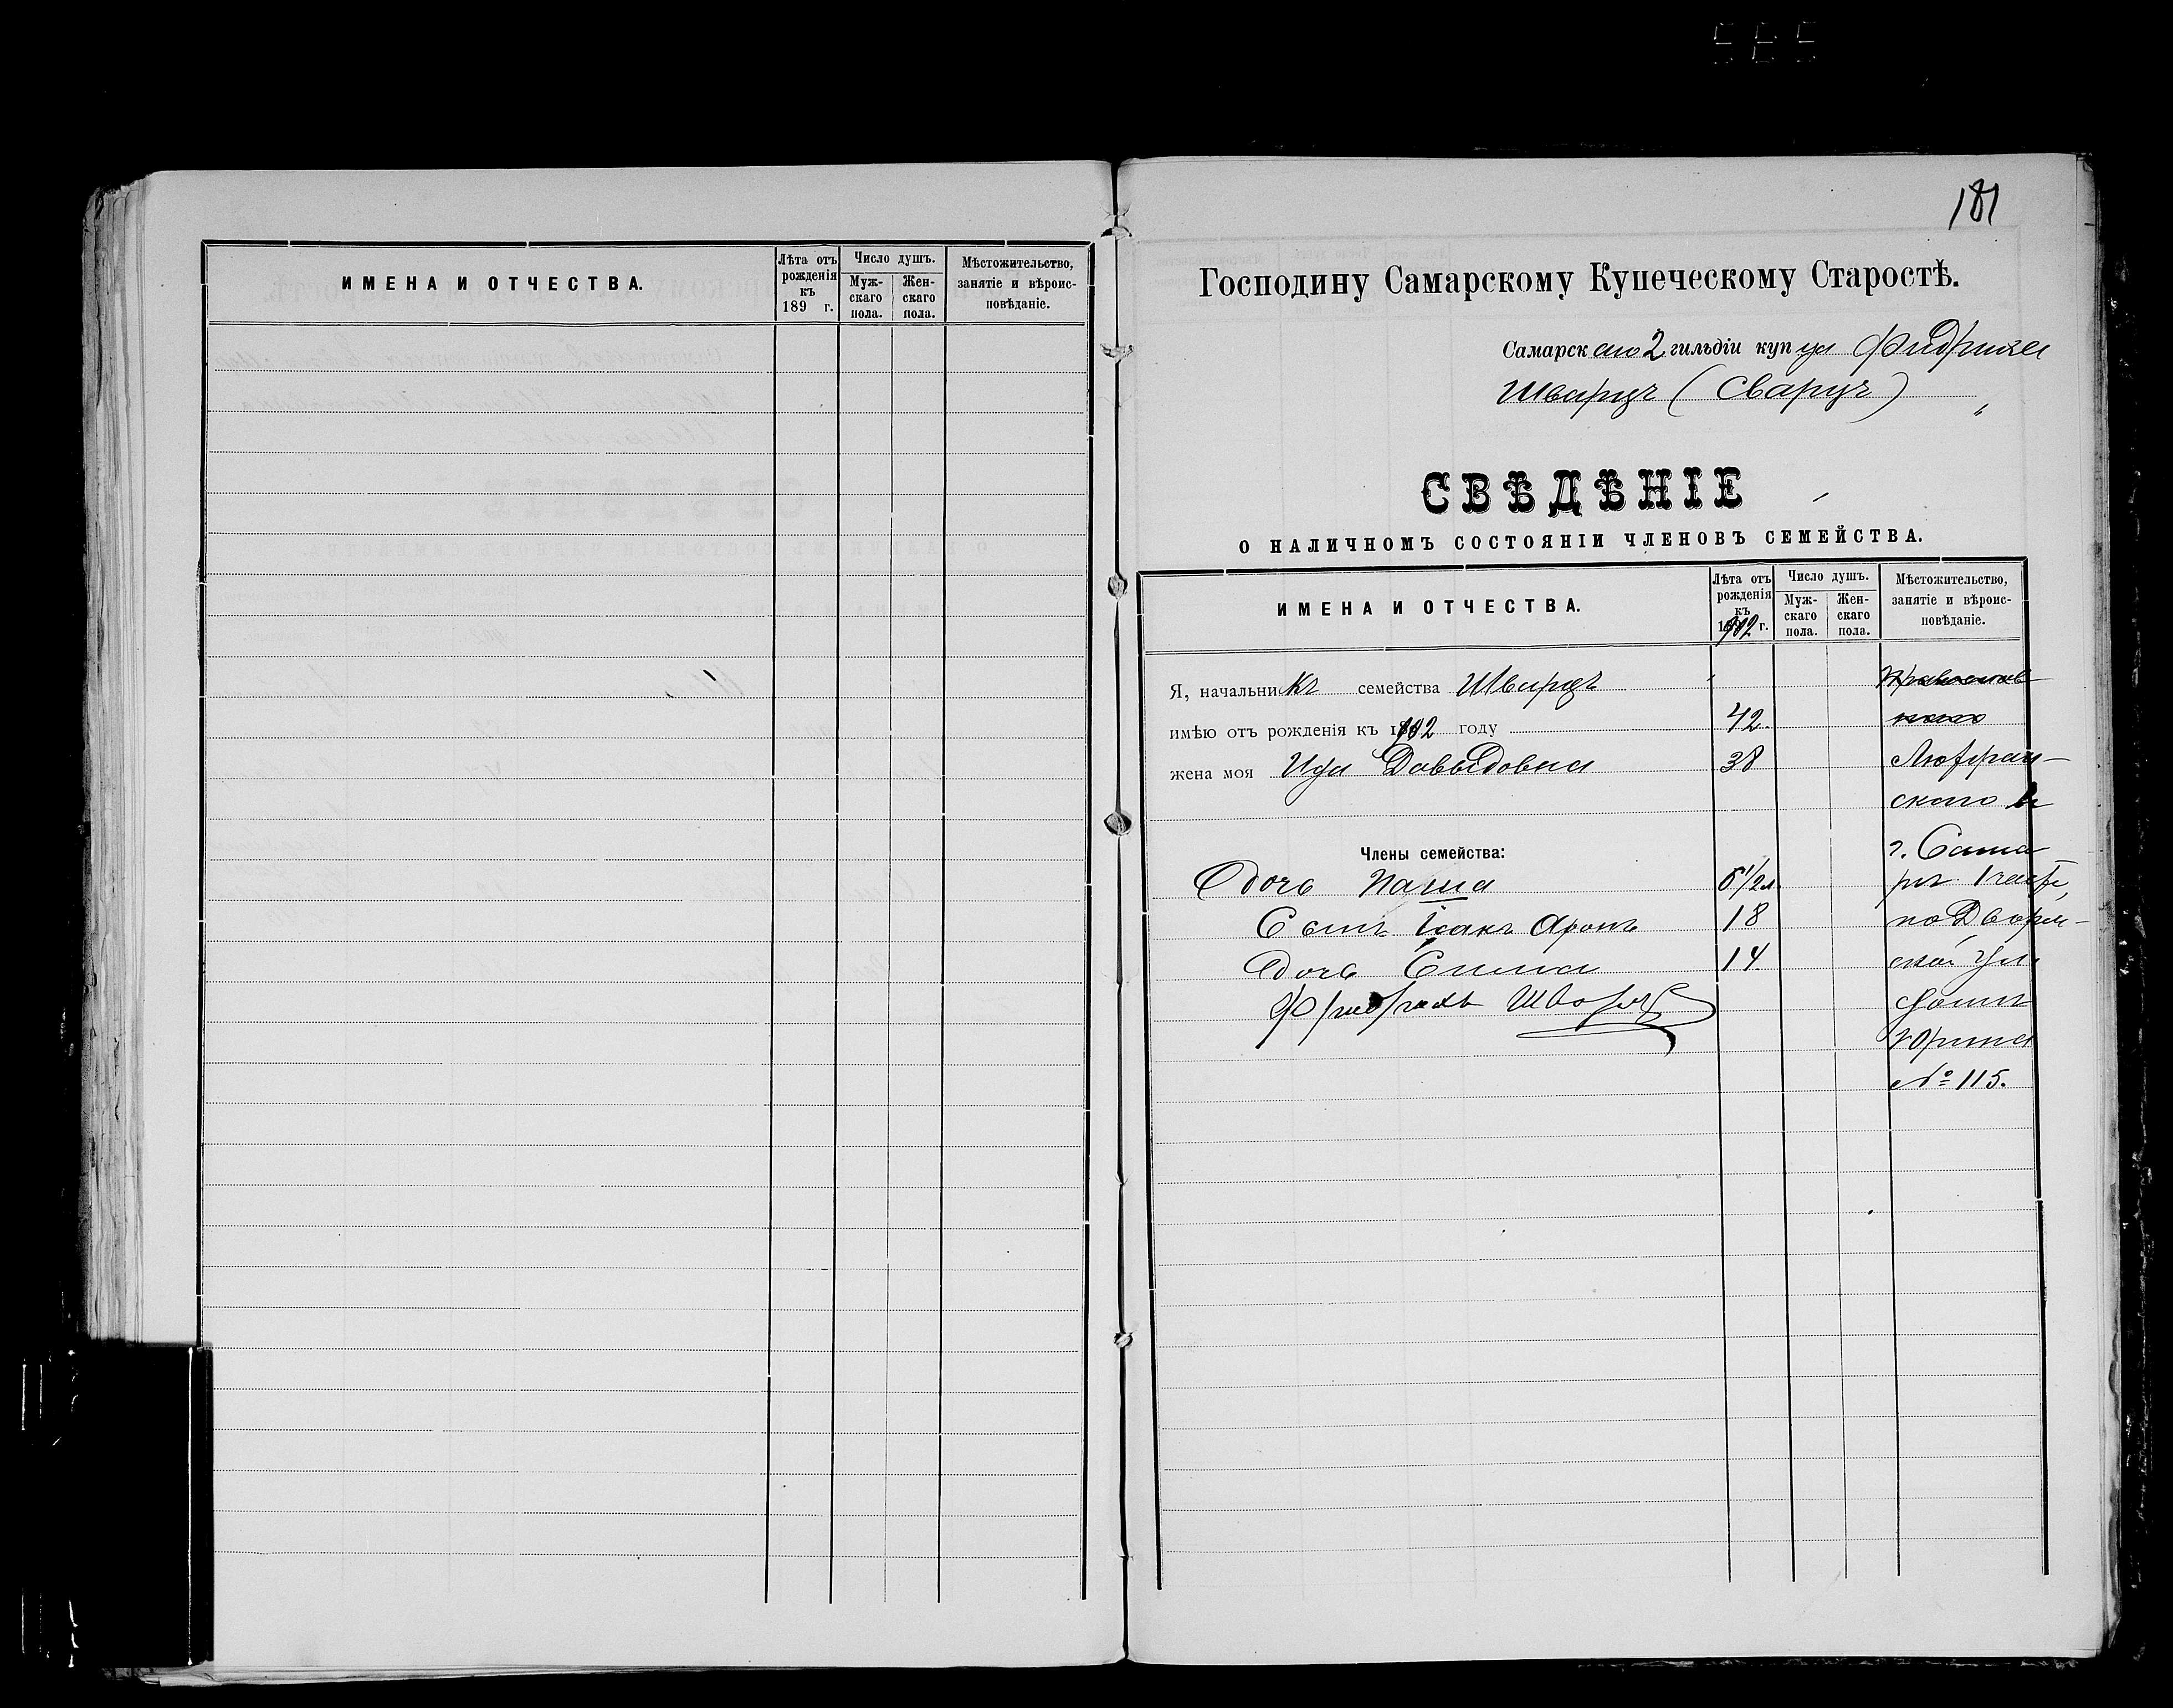 ИМЕНА И ОТЧЕСТВА.
Лѣта отъ рожденія къ 189 г.
Число душъ.
Мужскаго пола.
Женскаго пола.
Мѣстожительство, занятіе и вѣроисповѣданіе.
181
Господину Самарскому Купеческому Старостѣ.
Самарскаго 2 гильдіи купца Фидриха
Шварцъ (Сварцъ)
СВѢДѢНІЕ
О НАЛИЧНОМЪ СОСТОЯНІИ ЧЛЕНОВЪ СЕМЕЙСТВА.
ИМЕНА И ОТЧЕСТВА.
Лѣта отъ рожденія къ 1902 г.
Число душъ.
Муж-скаго пола.
Жен-скаго пола.
Мѣстожительство, занятіе и вѣроис-повѣданіе.
Я, начальникъ семейства Шварцъ
имѣю отъ рожденія къ 1902 году 42.
жена моя Ида Давыдовна 38 Лютеран-
скаго в
Члены семейства: г. Сама
Дочь Паша 6 1/2 л. рѣ
Сынъ Исакъ Аронъ 18 по Дворян-
Дочь 14. ской ул.
Фридрихъ Шварцъ домъ
Юрина
№ 115.